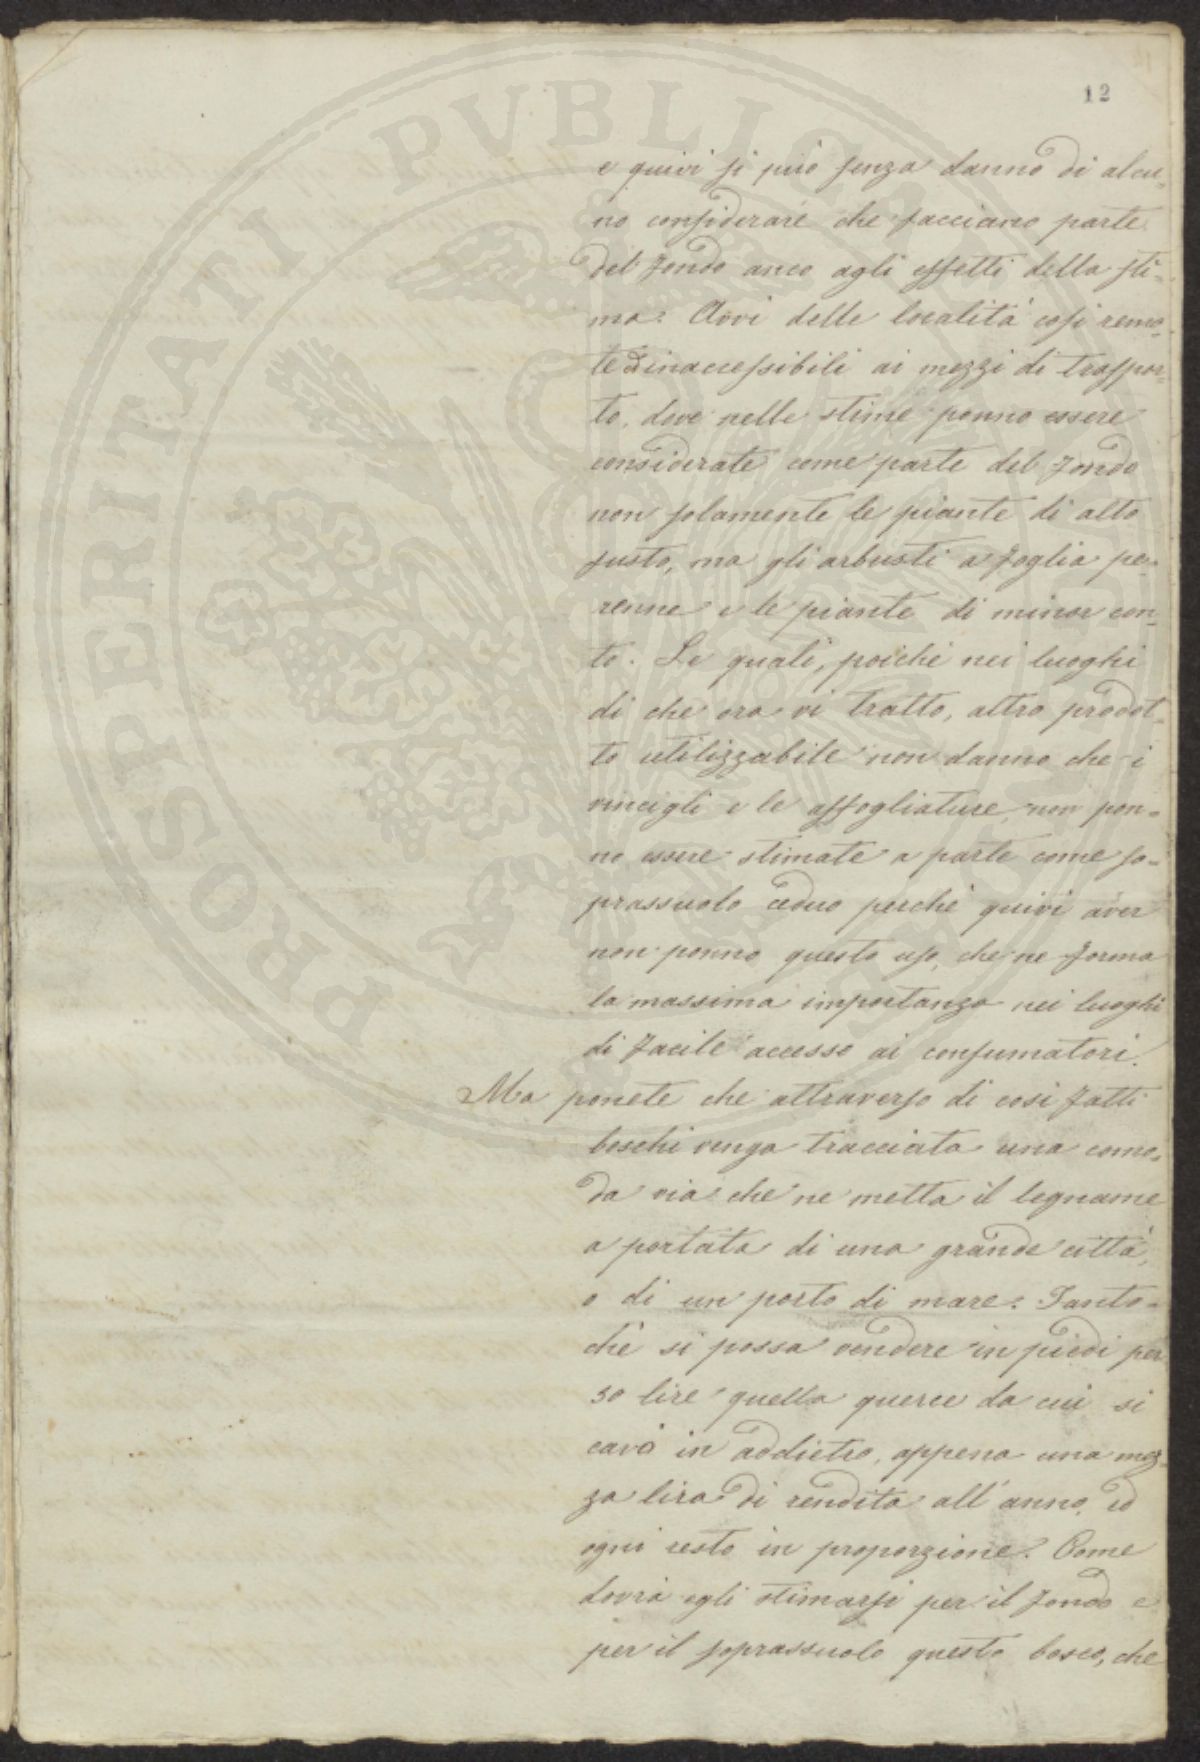 12
e quivi si può senza danno di alcu-
no considerare che facciano parte
del fondo anco agli effetti della sti-
ma. Avvi delle località così remo-
te ed inaccessibili ai mezzi di traspor-
to, dove nelle stime ponno essere
considerate come parte del fondo
non solamente le piante di alto
fusto, ma gli arbusti a foglia pe-
renne e le piante di minor con-
to. Le quali, poichè nei luoghi
di che ora vi tratto, altro prodot-
to utilizzabile non danno che i
vincigli e le affogliature, non pon-
no essere stimate a parte come so-
prassuolo ceduo perchè quivi aver
non ponno questo uso, che ne forma
la massima importanza nei luoghi
di facile accesso ai consumatori.
Ma ponete che attraverso di così fatti
boschi venga tracciata una como-
da via che ne metta il legname
a portata di una grande città,
o di un porto di mare: Tanto-
chè si possa vendere in piedi per
30 lire quella querce da cui si
cavò in addietro, appena una mez-
za lira di rendita all'anno, ed
ogni resto in proporzione. Come
dovrà egli stimarsi per il fondo e
per il soprassuolo questo bosco, che
PROSPERITATI PVBLICAE